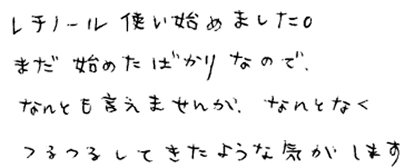 レチノール 使い始めました。
まだ 始めたばかりなので、
なんとも言えませんが、なんとなく
つるつるしてきたような気がします